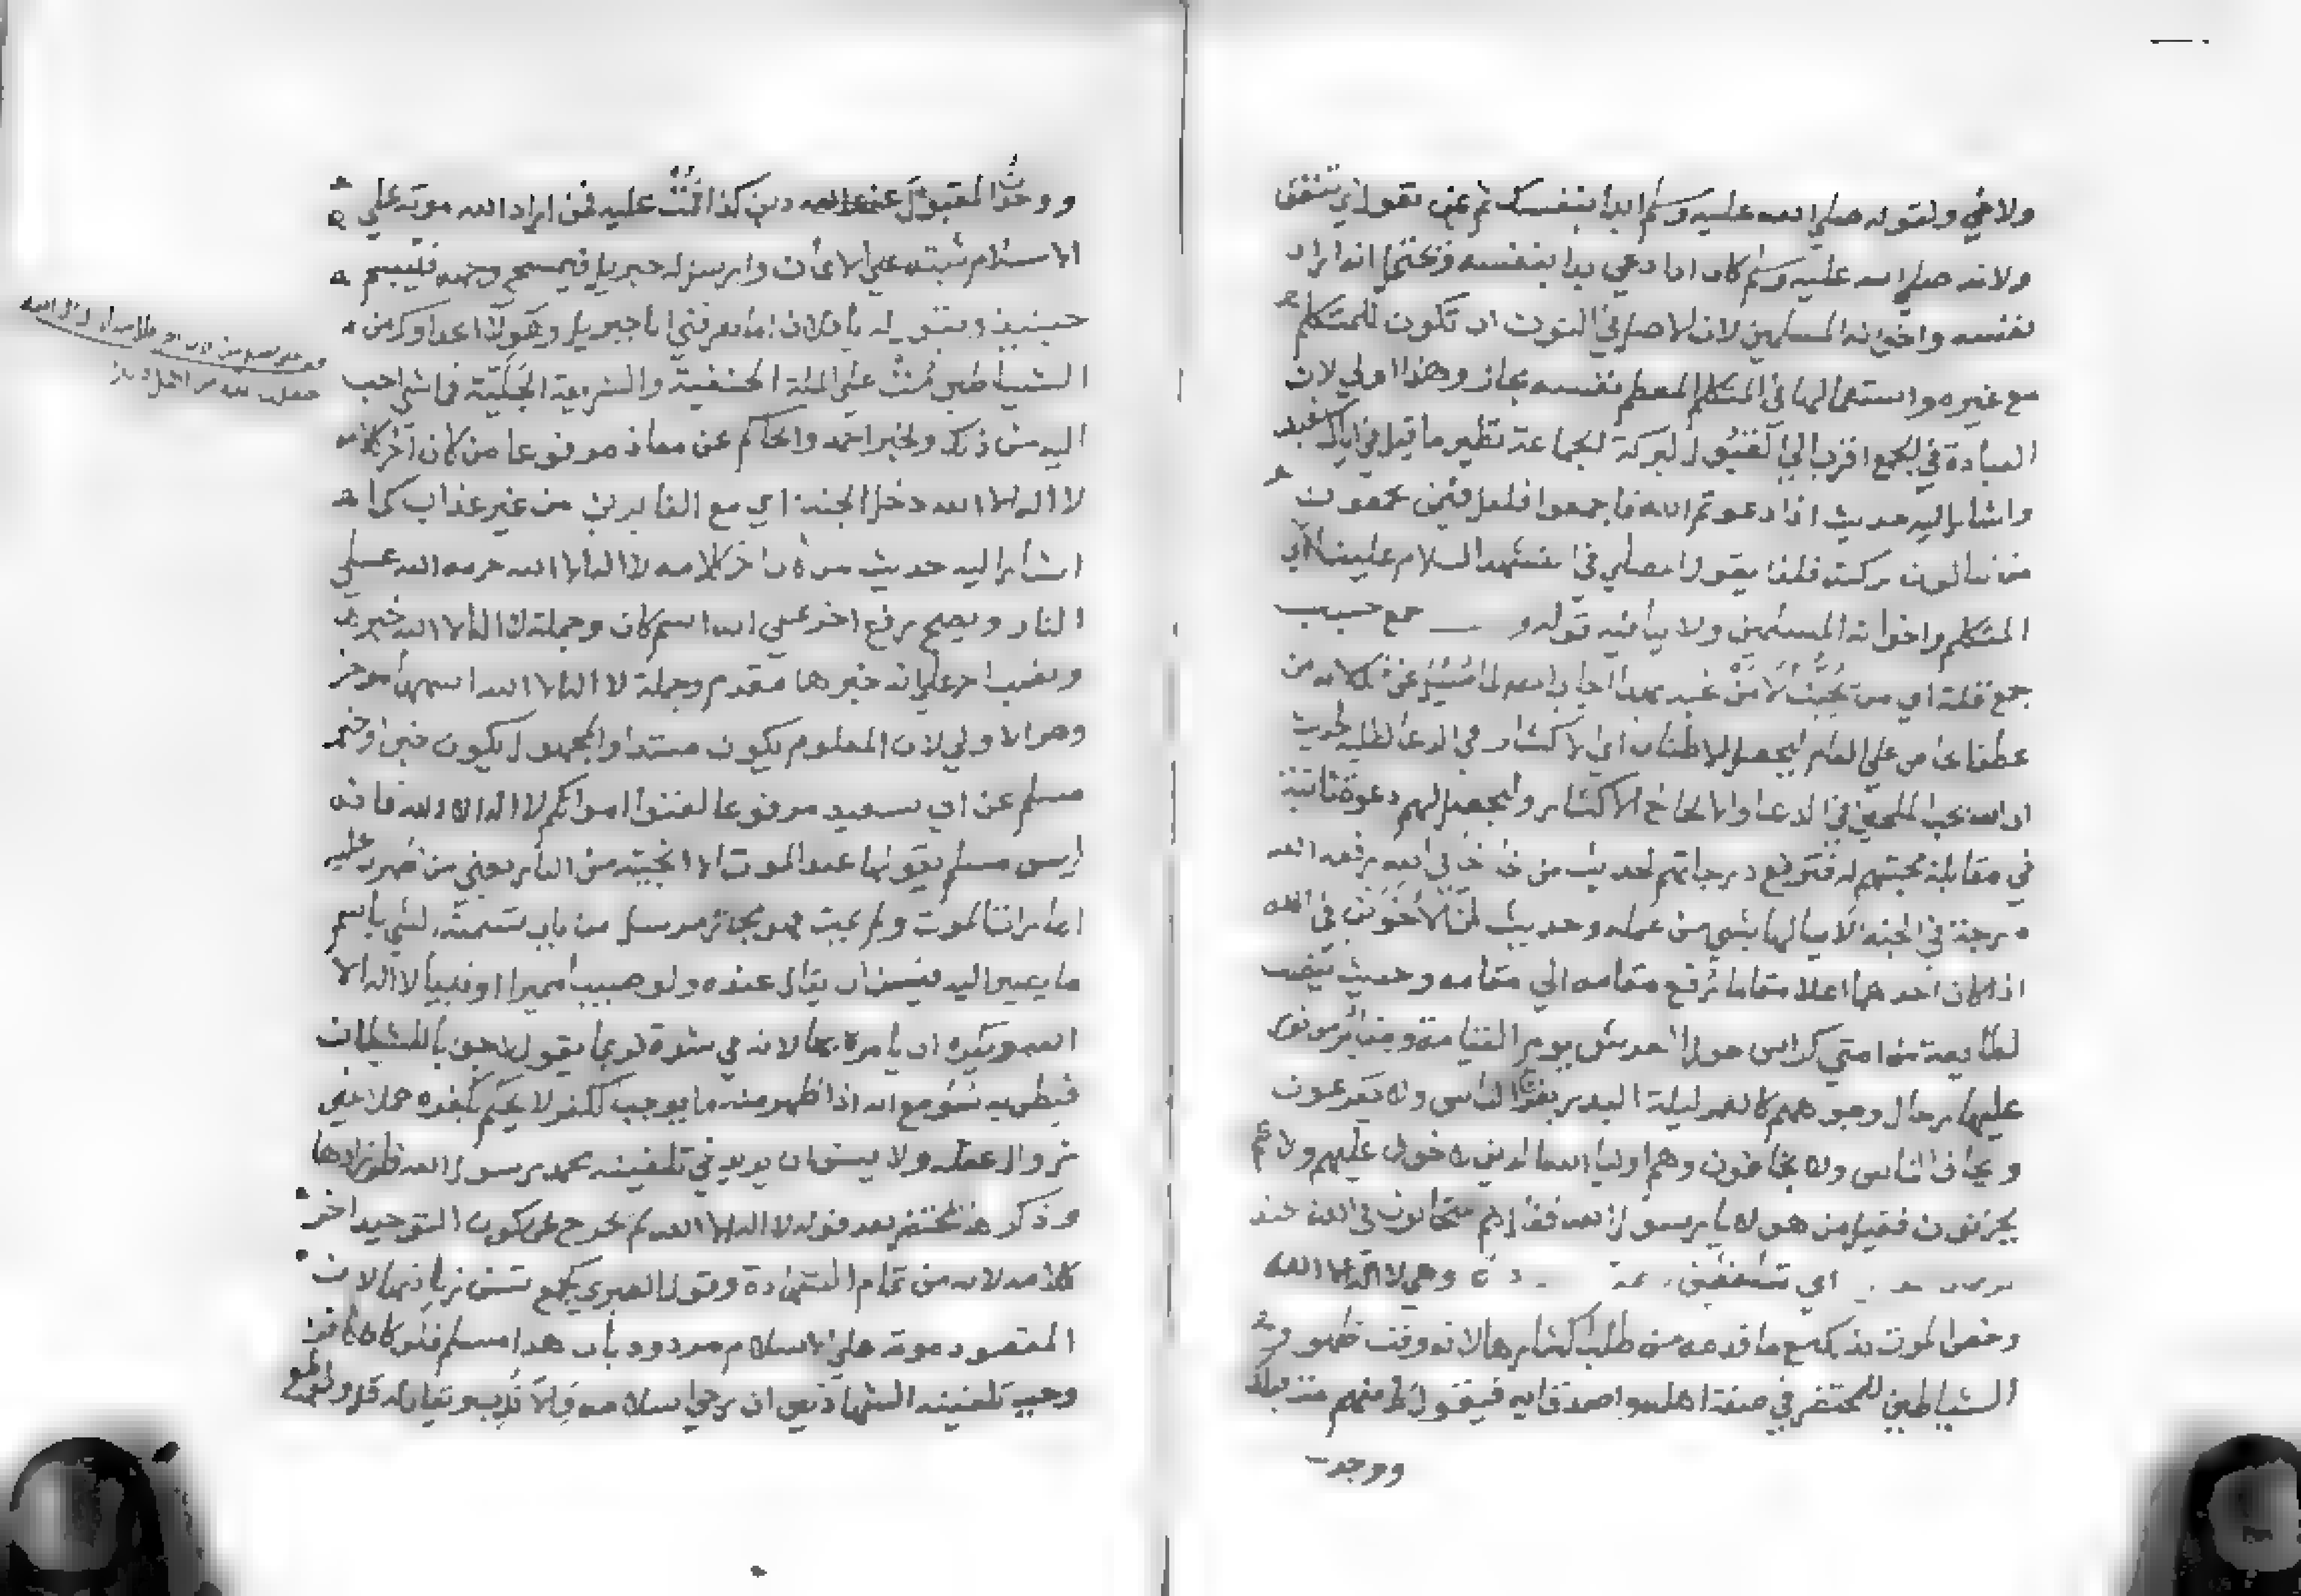 ولاخي ولقوله صلي الله عليه وسلم ابدا بنفسك ثم بمن تقول اي تنفق
ولانه صلي الله عليه وسلم كان اذا دعي بدا بنفسه ونختها انه اراد
نفسه واخوانه المسلمين لان الاصل في النون ان تكون للمتكلم
مع غيره واستعمالها في المتكلم المعظم نفسه مجاز وهذا اولي لان
العبادة في الجمع اقرب الي القبول لبركة الجماعة نظير ما قيل في اياك نعبد
واشار اليه حديث اذا دعوتم الله فاجمعوا فلعل فيمن تجمعون
من تنالون بركته فلذا يقول المصلي في التشهد السلام علينا اي
المتكلم واخوانه المسلمين ولا ينافيه قوله و جمع حبيب
جمع قلة اي من يحبنا لان من عبد
عطف خاص علي العام ليحصل الاطناب اي الاكثار في الدعا لطلبه لحديث
ان الله يحب الملحين في الدعا والالحاح الاكثار وليحصل لهم دعوة ثانية
في مقابلة محبتهم له فترفع درجاتهم لحديث من اخا في الله رفعه الله
درجة في الجنة لا ينالها بشي من عمله وحديث ان الاخوين في الله
اذا كان احدهما اعلا مقاما رفع مقامه الي مقامه وحديث ينصب
لطايفة من امتي كراسي حول العرش يوم القيامة
عليها رجال وجوههم كالقمر ليلة البدر يفزع الناس ولا يفزعون
ويخاف الناس ولا يخافون وهم اوليا الله الذين لا خوف عليهم ولا هم
يحزنون فقيل من هولا يا رسول الله فقال هم المتحابون في الله عند
اي وهي لا اله الا الله
وخص الموت بذلك مع ما قدمه من طلب اكثارها لانه وقت ظهور
الشياطين للمحتضر في صفة اهله واصدقايه فيقول له منهم مت قبلك
ووجدت
ووجدت المقبول عند الله دين كذا فمت عليه فمن اراد الله موته علي
الاسلام ثبته علي الايمان وارسل له جبريل فيمسح وجهه فيبسم
حينيذ ويقول له يا فلان اما تعرفني انا جبريل وهولا اعداوك من
الشياطين مت علي الملة الحنفية والشريعة الجلية فما شي احب
اليه من ذلك ولخبر احمد والحاكم عن معاذ مرفوعا من كان اخر كلامه
لا اله الا الله دخل الجنة اي مع الفايزين من غير عذاب كما
اشار اليه حديث من كان اخر كلامه لا اله الا الله حرمه الله علي
النار ويصح رفع اخر علي انه اسم كان وجملة لا اله الا الله خبرها
ونصب اخر علي انه خبرها مقدم وجملة لا اله الا الله اسمها موخر
وهو الاولي لان المعلوم يكون مبتدا والمجهول يكون خبرا وخبر
مسلم عن ابي سعيد مرفوعا لقنوا امواتكم لا اله الا الله فانه
ليس مسلم يقولها عند الموت الا انجته من النار يعني من ظهرت عليه
امارات الموت ولم يمت فهو مجاز مرسل من باب تسمية الشي باسم
ما يصير اليه فيسن ان يقال عنده ولو صبيا مميزا او نبيا لا اله الا
الله ويكره ان يامره بها لانه في شدة فربما يقول لا جوابا للشيطان
فيظن به سو مع انه اذا ظهر منه ما يوجب الكفر لا يحكم بكفره حملا علي
زوال عقله ولا يسن ان يزيد في تلقينه محمد رسول الله فلو زادها
وذكرها المحتضر بعد قوله لا اله الا الله لم تخرج عن كون التوحيد اخر
كلامه لانه من تمام الشهادة وقول الطبري كجمع تسن زيادتها لان
المقصود موته علي الاسلام مردود بان هذا مسلم فلو كان كافرا
وجب تلقينه الشهادتين ان رجي اسلامه والا ندب ويقال له قل